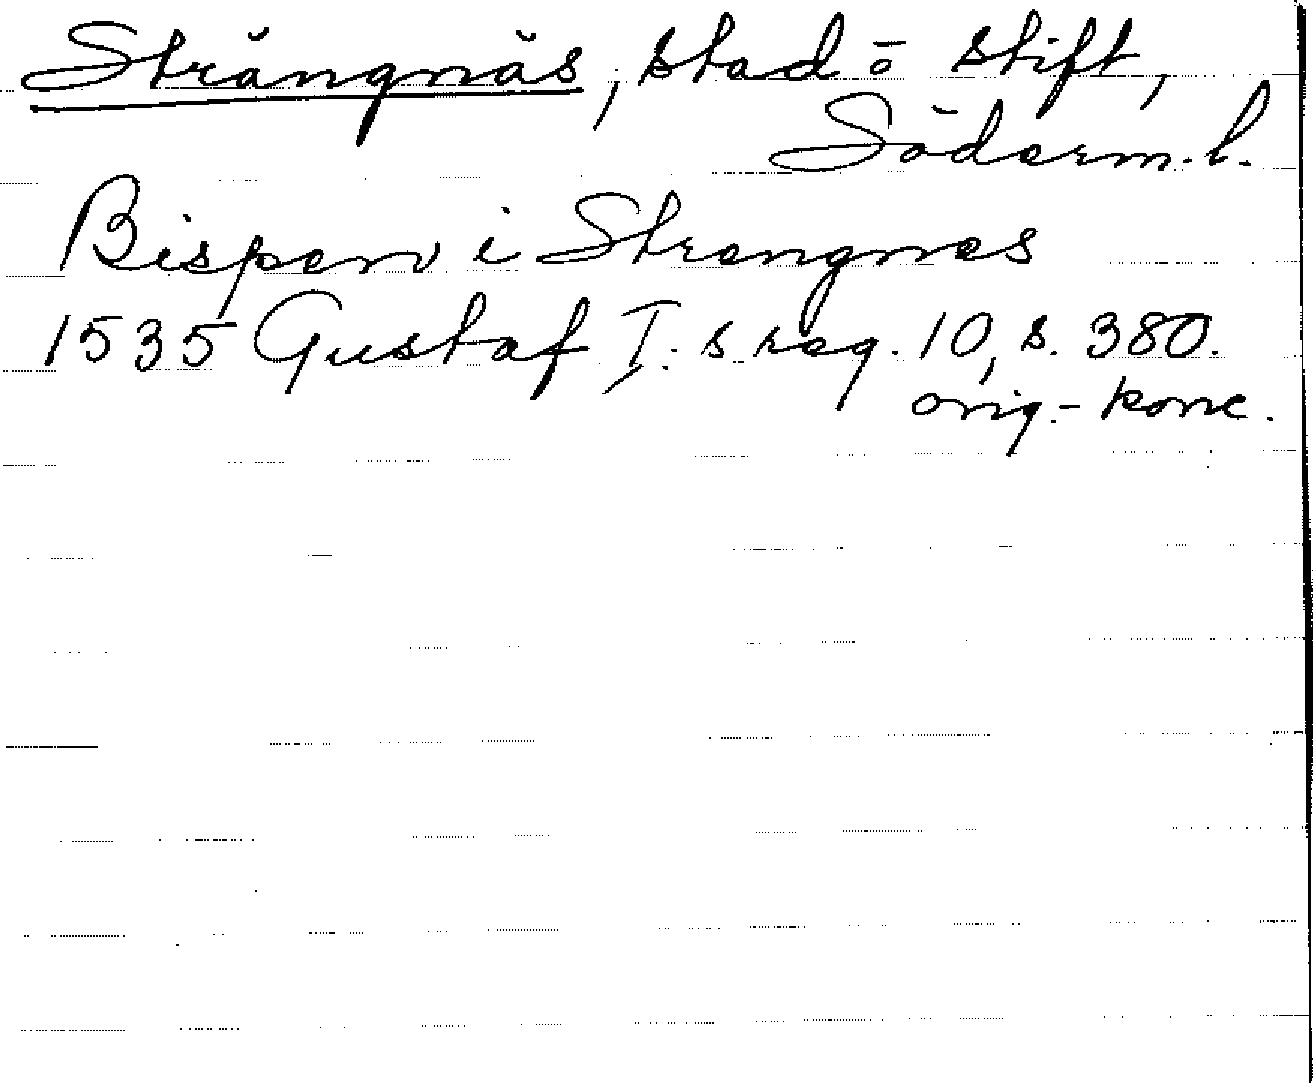 Strängnäs, stad o stift,
Söderm. l.
Bispenn i Strengnes
1535 Gustaf I:s reg. 10, s. 380.
orig.-konc.